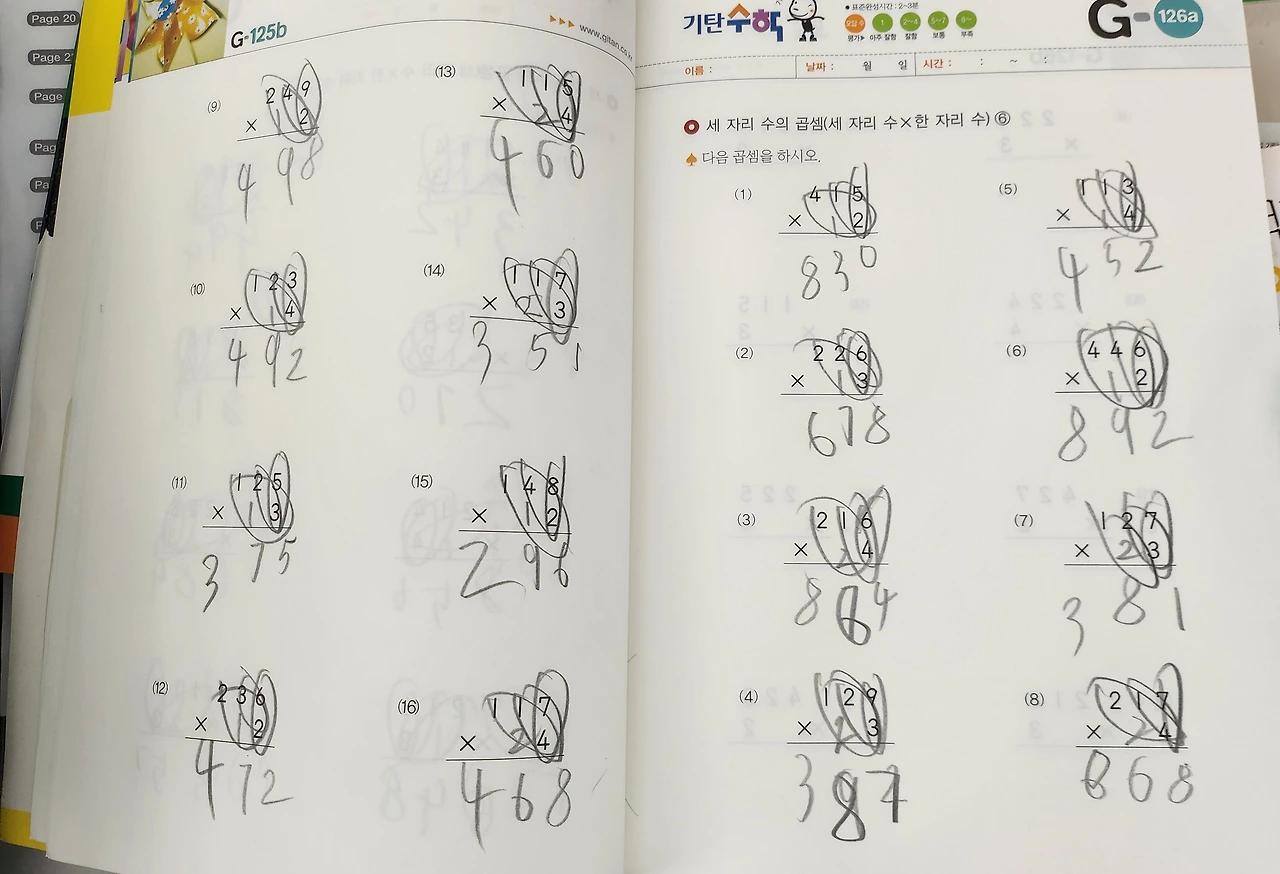 Page 20
Page 2
Page
G-125b
www.gitan.co.kr
(9)
249
× 2
498
(10)
123
× 4
492
(11)
125
× 3
375
(12)
236
× 2
472
(13)
115
× 4
460
(14)
117
× 3
351
(15)
148
× 2
296
(16)
117
× 4
468
기탄수학
● 표준완성시간 : 2~3분
오답 수 1 2~4 5~7 8~
평가▶ 아주 잘함 잘함 보통 부족
G-126a
이름 : 날짜 : 월 일 시간 : : ~ :
세 자리 수의 곱셈(세 자리 수×한 자리 수) ⑥
다음 곱셈을 하시오.
(1)
415
× 2
830
(2)
226
× 3
678
(3)
216
× 4
864
(4)
129
× 3
387
(5)
113
× 4
452
(6)
446
× 2
892
(7)
127
× 3
381
(8)
217
× 4
868